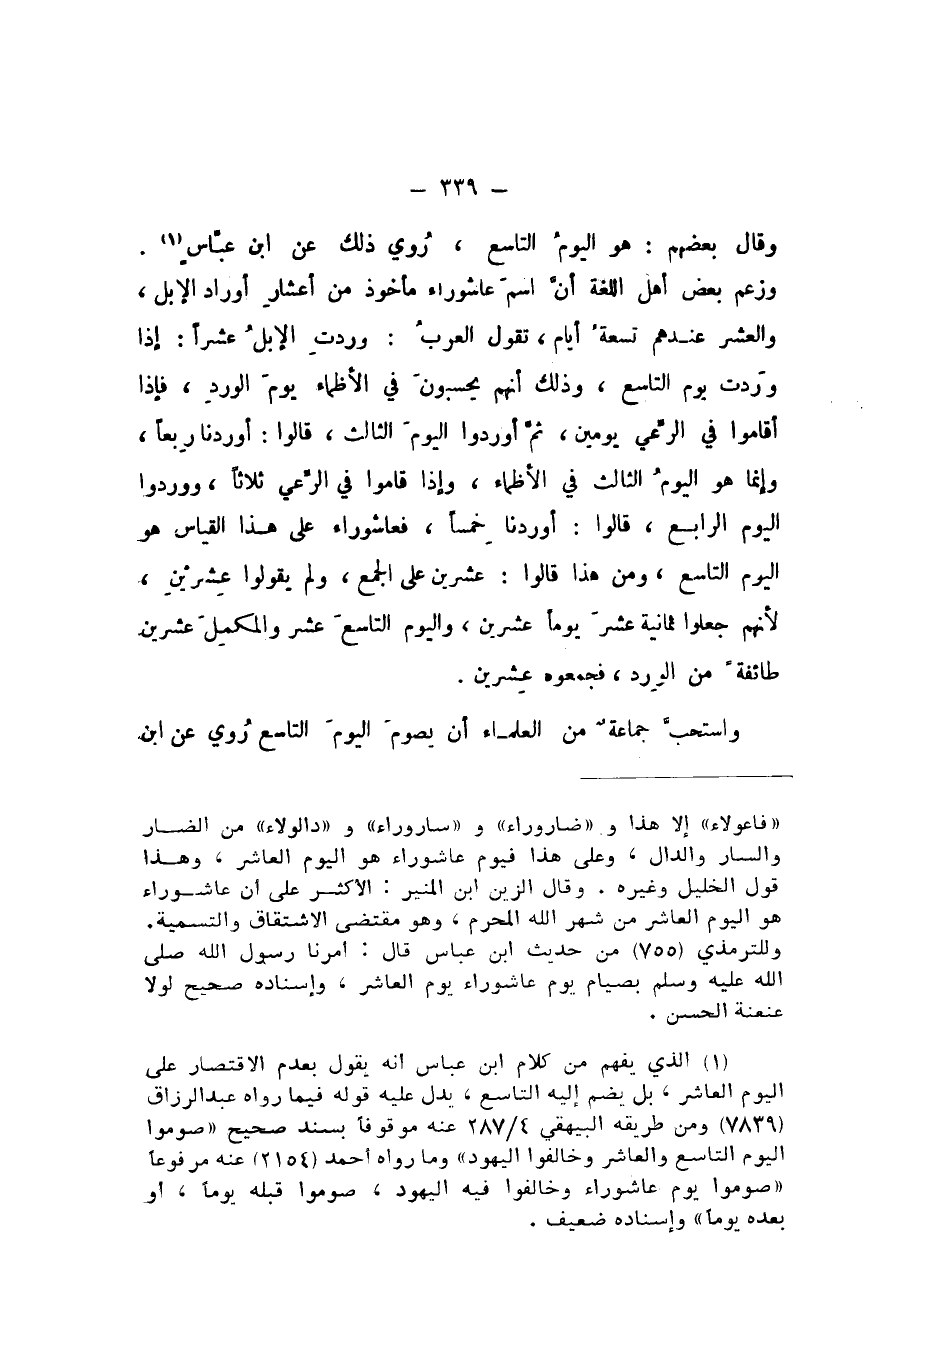 – ٣٣٩ –
وقال بعضهم : هو اليومُ التاسع ، رُوي ذلك عن ابن عبَّاسٍ(١) .
وزعم بعض أهل اللغة أنَّ اسمَ عاشوراء مأخوذ من أعشارِ أوراد الإبل ،
والعشر عندهم تسعةُ أيام ، تقول العربُ : وردتِ الإبلُ عشراً : إذا
وَردت يوم التاسع ، وذلك أنهم يحسبونَ في الأظماء يومَ الوردِ ، فإذا
أقاموا في الرَّعي يومين ، ثمَّ أوردوا اليومَ الثالث ، قالوا : أوردنا رِبعاً ،
وإنما هو اليومُ الثالث في الأظماء ، وإذا قاموا في الرَّعي ثلاثاً ، ووردوا
اليوم الرابع ، قالوا : أوردنا خِمساً ، فعاشوراء على هذا القياس هو
اليوم التاسع ، ومن هذا قالوا : عشرين على الجمع ، ولم يقولوا عِشرَيْنِ ،
لأنهم جعلوا ثمانية عشرَ يوماً عشرين ، واليوم التاسعَ عشر والمكملَ عشرين
طائفةً من الوِرد ، فجمعوه عِشرين .
واستحبَّ جماعةٌ من العلماء أن يصومَ اليومَ التاسع رُوي عن ابن
«فاعولاء» إلا هذا و «ضاروراء» و «ساروراء» و «دالولاء» من الضار
والسار والدال ، وعلى هذا فيوم عاشوراء هو اليوم العاشر ، وهذا
قول الخليل وغيره . وقال الزين ابن المنير : الأكثر على أن عاشوراء
هو اليوم العاشر من شهر الله المحرم ، وهو مقتضى الاشتقاق والتسمية.
وللترمذي (٧٥٥) من حديث ابن عباس قال : أمرنا رسول الله صلى
الله عليه وسلم بصيام يوم عاشوراء يوم العاشر ، وإسناده صحيح لولا
عنعنة الحسن .
(١) الذي يفهم من كلام ابن عباس أنه يقول بعدم الاقتصار على
اليوم العاشر ، بل يضم إليه التاسع ، يدل عليه قوله فيما رواه عبدالرزاق
(٧٨٣٩) ومن طريقه البيهقي ٢٨٧/٤ عنه موقوفاً بسند صحيح «صوموا
اليوم التاسع والعاشر وخالفوا اليهود» وما رواه أحمد (٢١٥٤) عنه مرفوعاً
«صوموا يوم عاشوراء وخالفوا فيه اليهود ، صوموا قبله يوماً ، أو
بعده يوماً» وإسناده ضعيف .